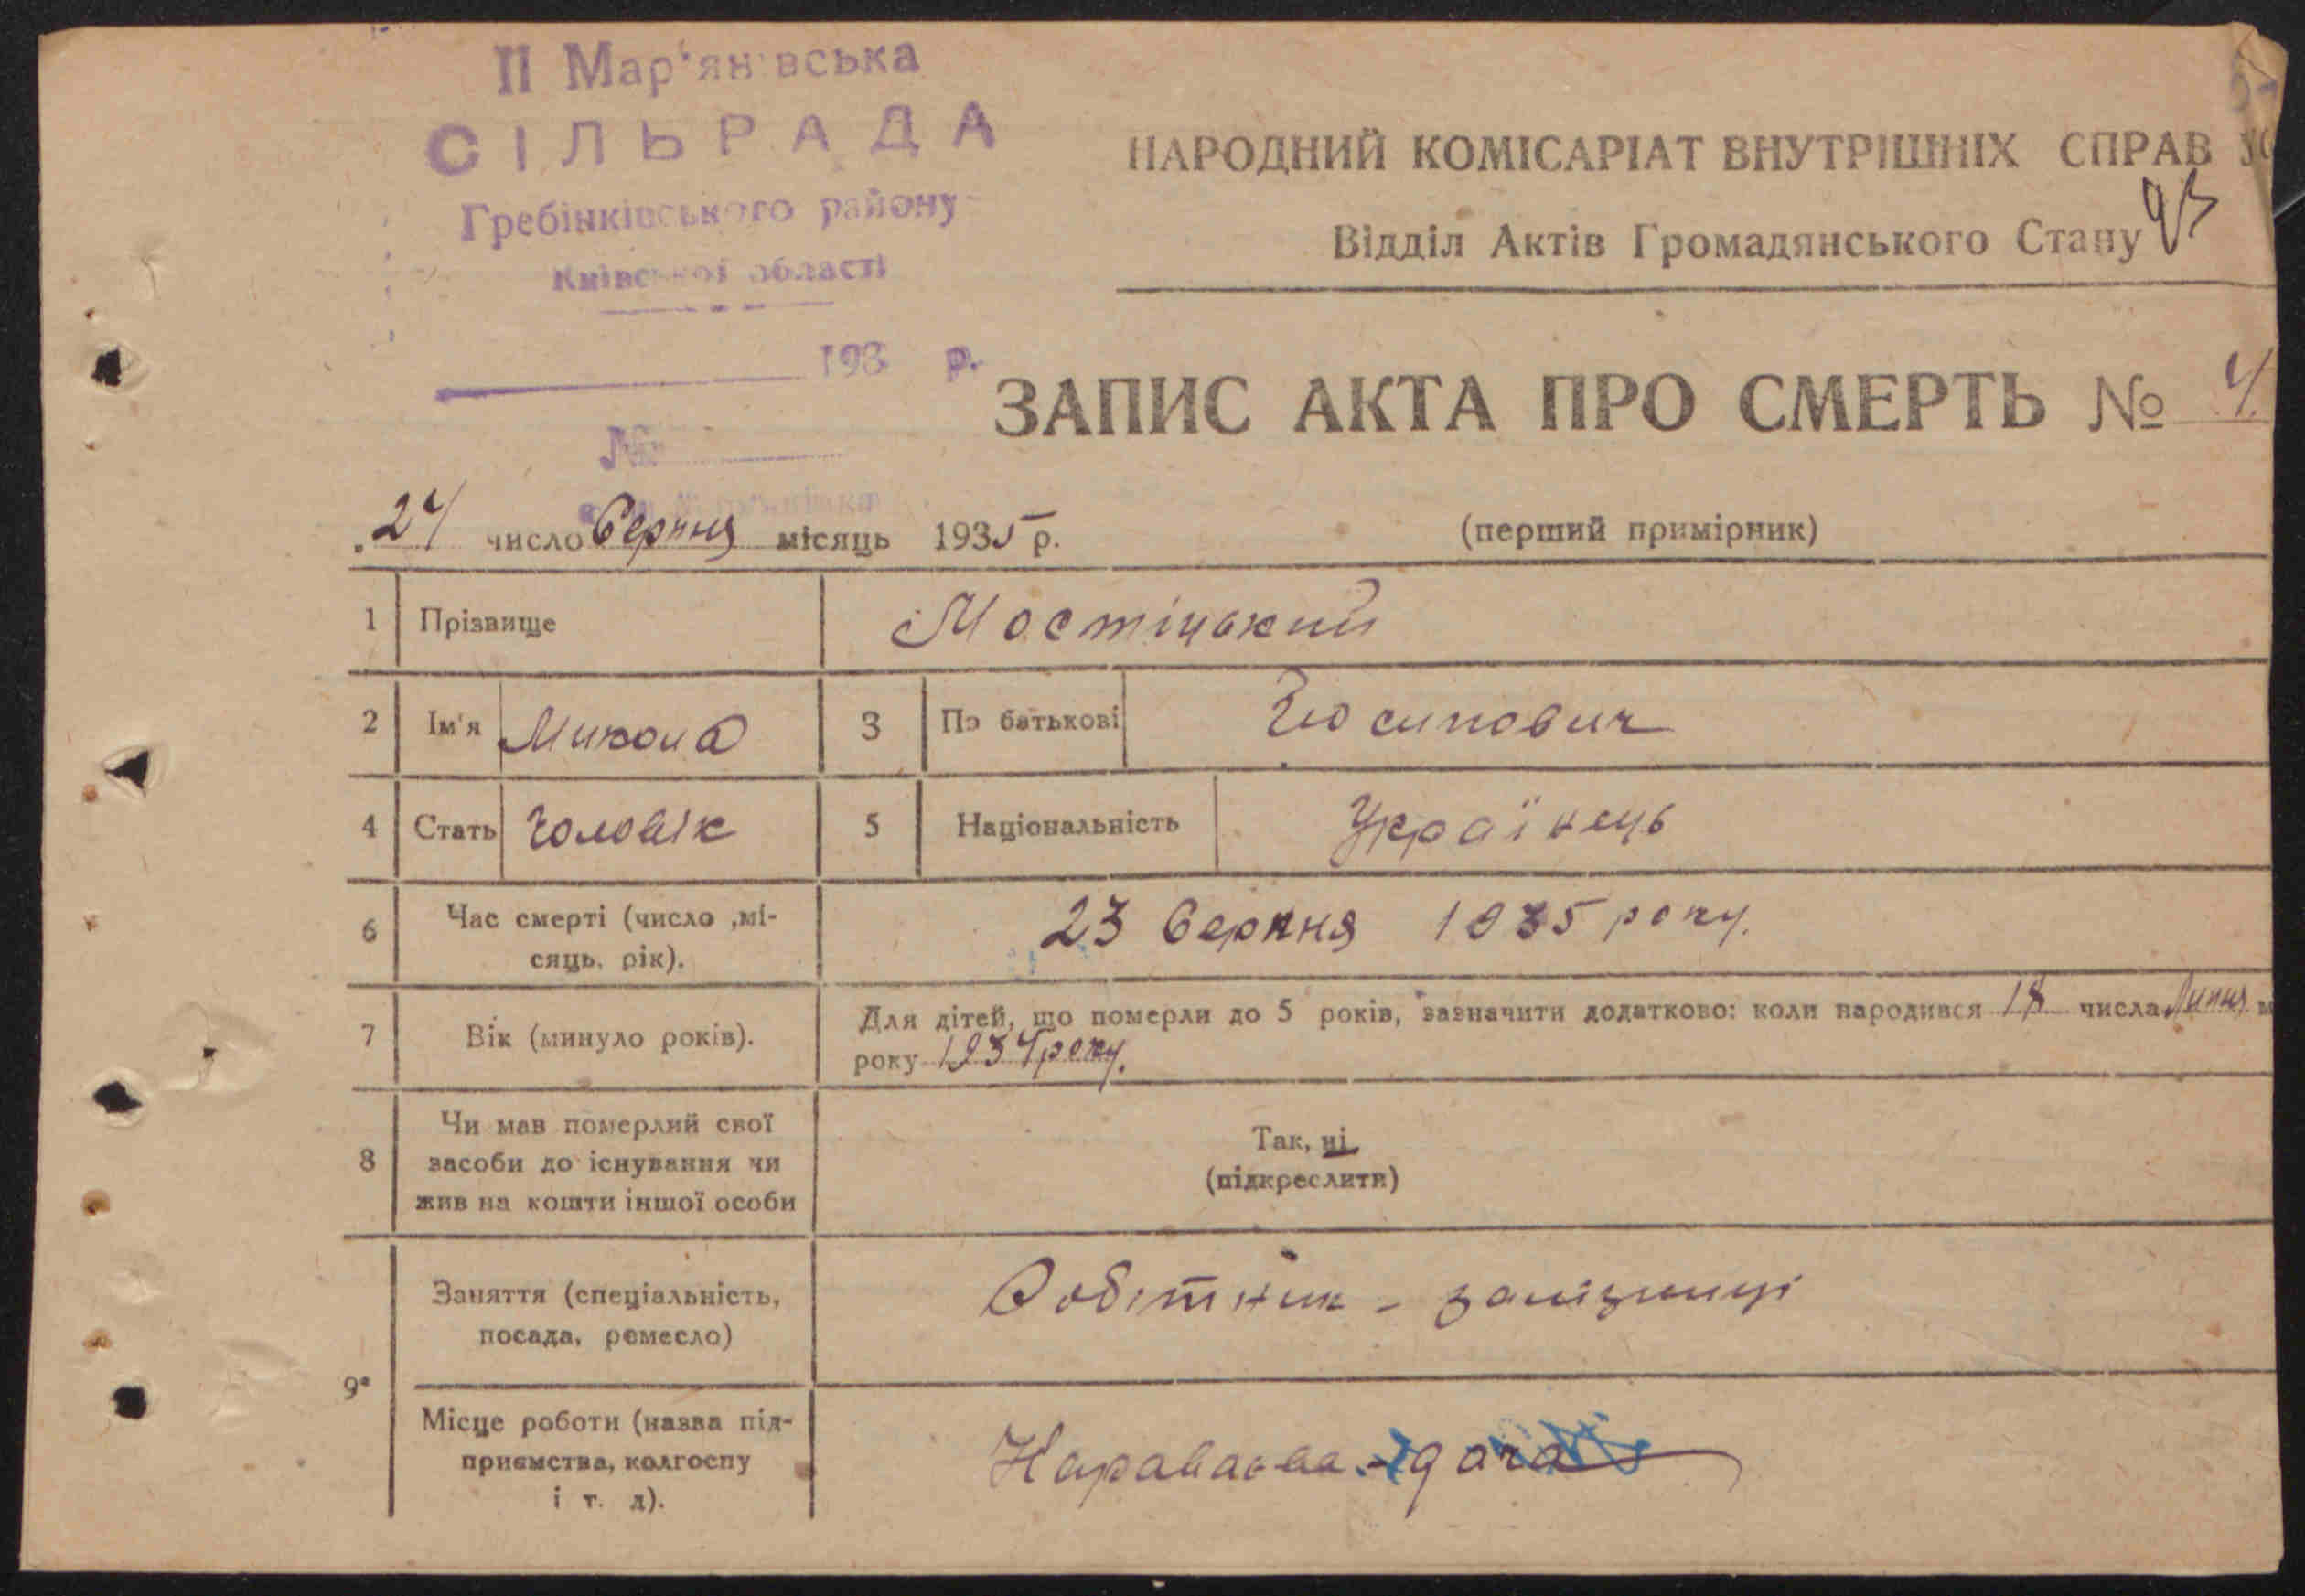 ІІ Мар'янівська
СІЛЬРАДА
Гребінківського району
Київської області
193 р.
№
НАРОДНИЙ КОМІСАРІАТ ВНУТРІШНІХ СПРАВ
Відділ Актів Громадянського Стану
ЗАПИС АКТА ПРО СМЕРТЬ № 4.
24 число Серпня місяць 1935 р.
(перший примірник)
1 Прізвище Мостіцький
2 Ім'я Микола 3 По батькові Йосипович
4 Стать Чоловік 5 Національність Українець
6 Час смерті (число ,мі-
сяць, рік).
23 Серпня 1935 року.
7 Вік (минуло років).
Для дітей, що померли до 5 років, зазначити додатково: коли народився 18 числа Липня м
року 1934 року.
8 Чи мав померлий свої
засоби до існування чи
жив на кошти іншої особи
Так, ні
(підкреслити)
9а
Заняття (спеціальність,
посада, ремесло)
Робітник - залізниці
Місце роботи (назва під-
приємства, колгоспу
і т. д).
Караваєва - дача